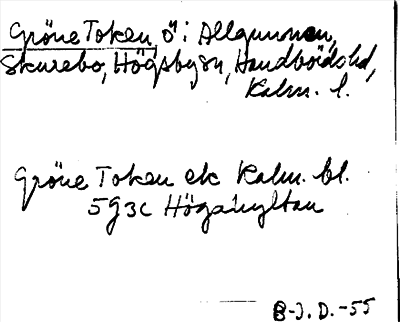 Gröne Token, ö i Allgunnen,
Skurebo, Högsby sn, Handbörds hd,
Kalm. l.
Gröne Token ek Kalm. bl.
5G3c Höganyltan
B-J. D. -55